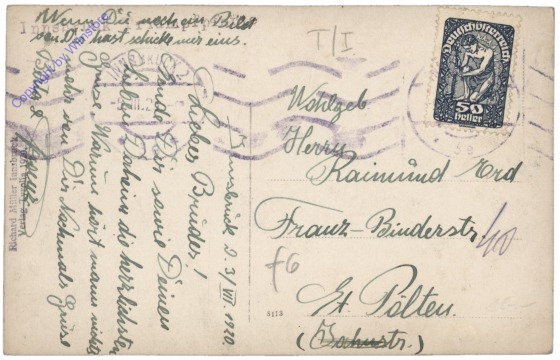 Wenn Du noch ein Bild
von Dir hast schicke mir eins.
Innsbruck d. 3/VIII 1920.
Lieber Bruder!
Sende Dir sowie Deinen
lieben Daheim die herzlichsten
Grüsse. Warum hört man nichts
mehr von Dir. Nochmals Grüsse
Copyright by Wanstore
INNSBRUCK 2
Richard Müller Innsbruck
Verlag Tyrolia
T/I
Deutschösterreich
50
Heller
Wohlgeb
Herrn
Raimund Erd
Franz-Binderstr.
40
f6
St. Pölten.
(Jahnstr.)